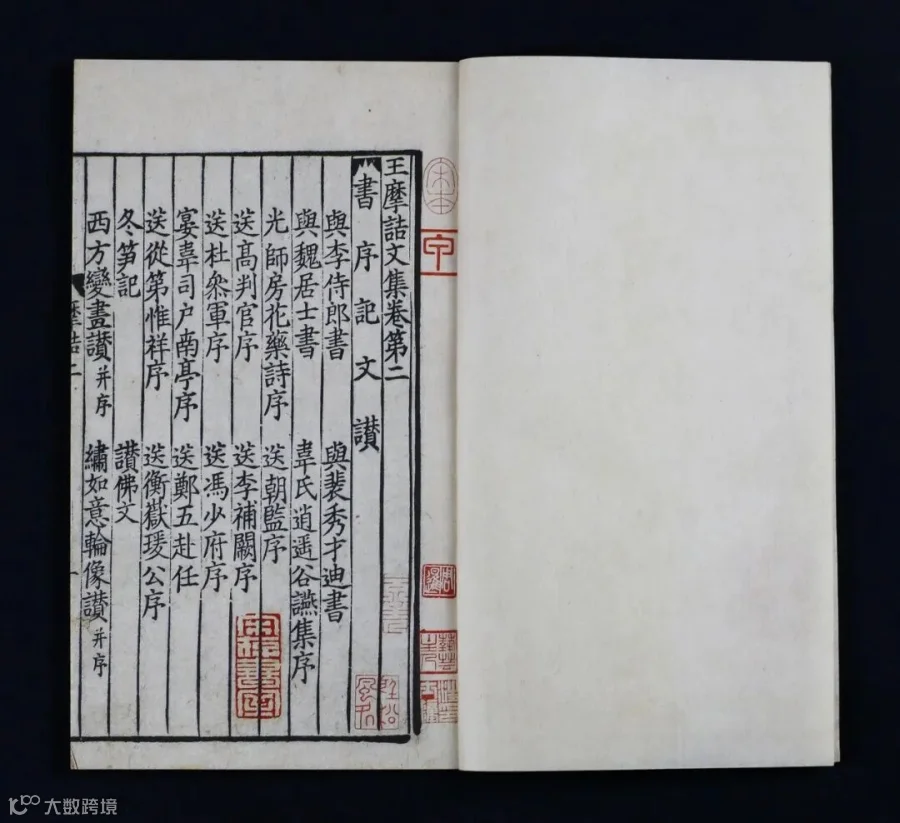 王摩詰文集卷第二
書序記文讃
與李侍郎書 與裴秀才迪書
與魏居士書 韋氏逍遥谷讌集序
光師房花藥詩序 送朝監序
送高判官序 送李補闕序
送杜叅軍序 送馮少府序
宴韋司户南亭序 送鄭五赴任
送從第惟祥序 送衡嶽瑗公序
冬笋記 讃佛文
西方變畫讃并序 繡如意輪像讃并序
摩詰二
宋本
大数跨境